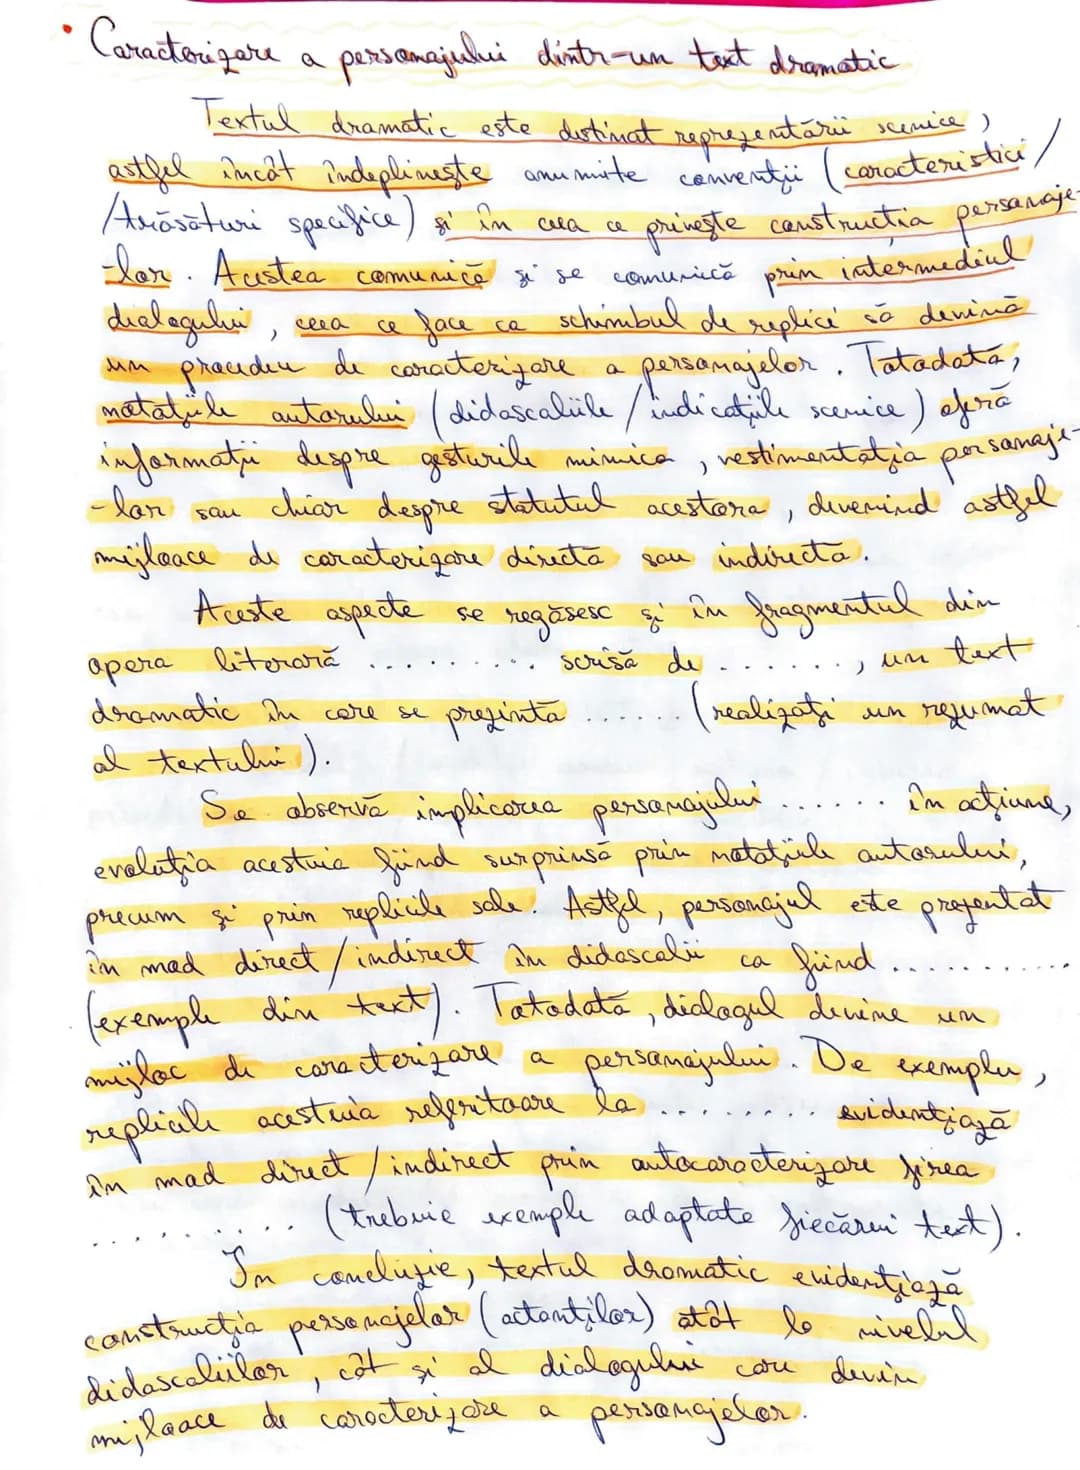 • Caracterizare a personajului dintr-un text dramatic
Textul dramatic este destinat reprezentării scenice,
astfel încât îndeplinește anumite convenții (caracteristici/
/trăsături specifice) și în ceea ce privește construcția personaje-
-lor. Acestea comunică și se comunică prin intermediul
dialogului, ceea ce face ca schimbul de replici să devină
un procedeu de caracterizare a personajelor. Totodată,
notațiile autorului (didascaliile/indicațiile scenice) oferă
informații despre gesturile mimica, vestimentația personaje-
-lor sau chiar despre statutul acestora, devenind astfel
mijloace de caracterizare directă sau indirectă.
Aceste aspecte se regăsesc și în fragmentul din
opera literară .......... scrisă de ......, un text
dramatic în care se prezintă ...... (realizați un rezumat
al textului).
Se observă implicarea personajului ...... în acțiune,
evoluția acestuia fiind surprinsă prin notațiile autorului,
precum și prin replicile sale. Astfel, personajul este prezentat
în mod direct/indirect în didascalii ca fiind ...........
(exemple din text). Totodată, dialogul devine un
mijloc de caracterizare a personajului. De exemplu,
replicile acestuia referitoare la ......... evidențiază
în mod direct/indirect prin autocaracterizare firea
.......... (trebuie exemple adaptate fiecărui text).
În concluzie, textul dramatic evidențiază
construcția personajelor (actanților) atât la nivelul
didascaliilor, cât și al dialogului care devin
mijloace de caracterizare a personajelor.